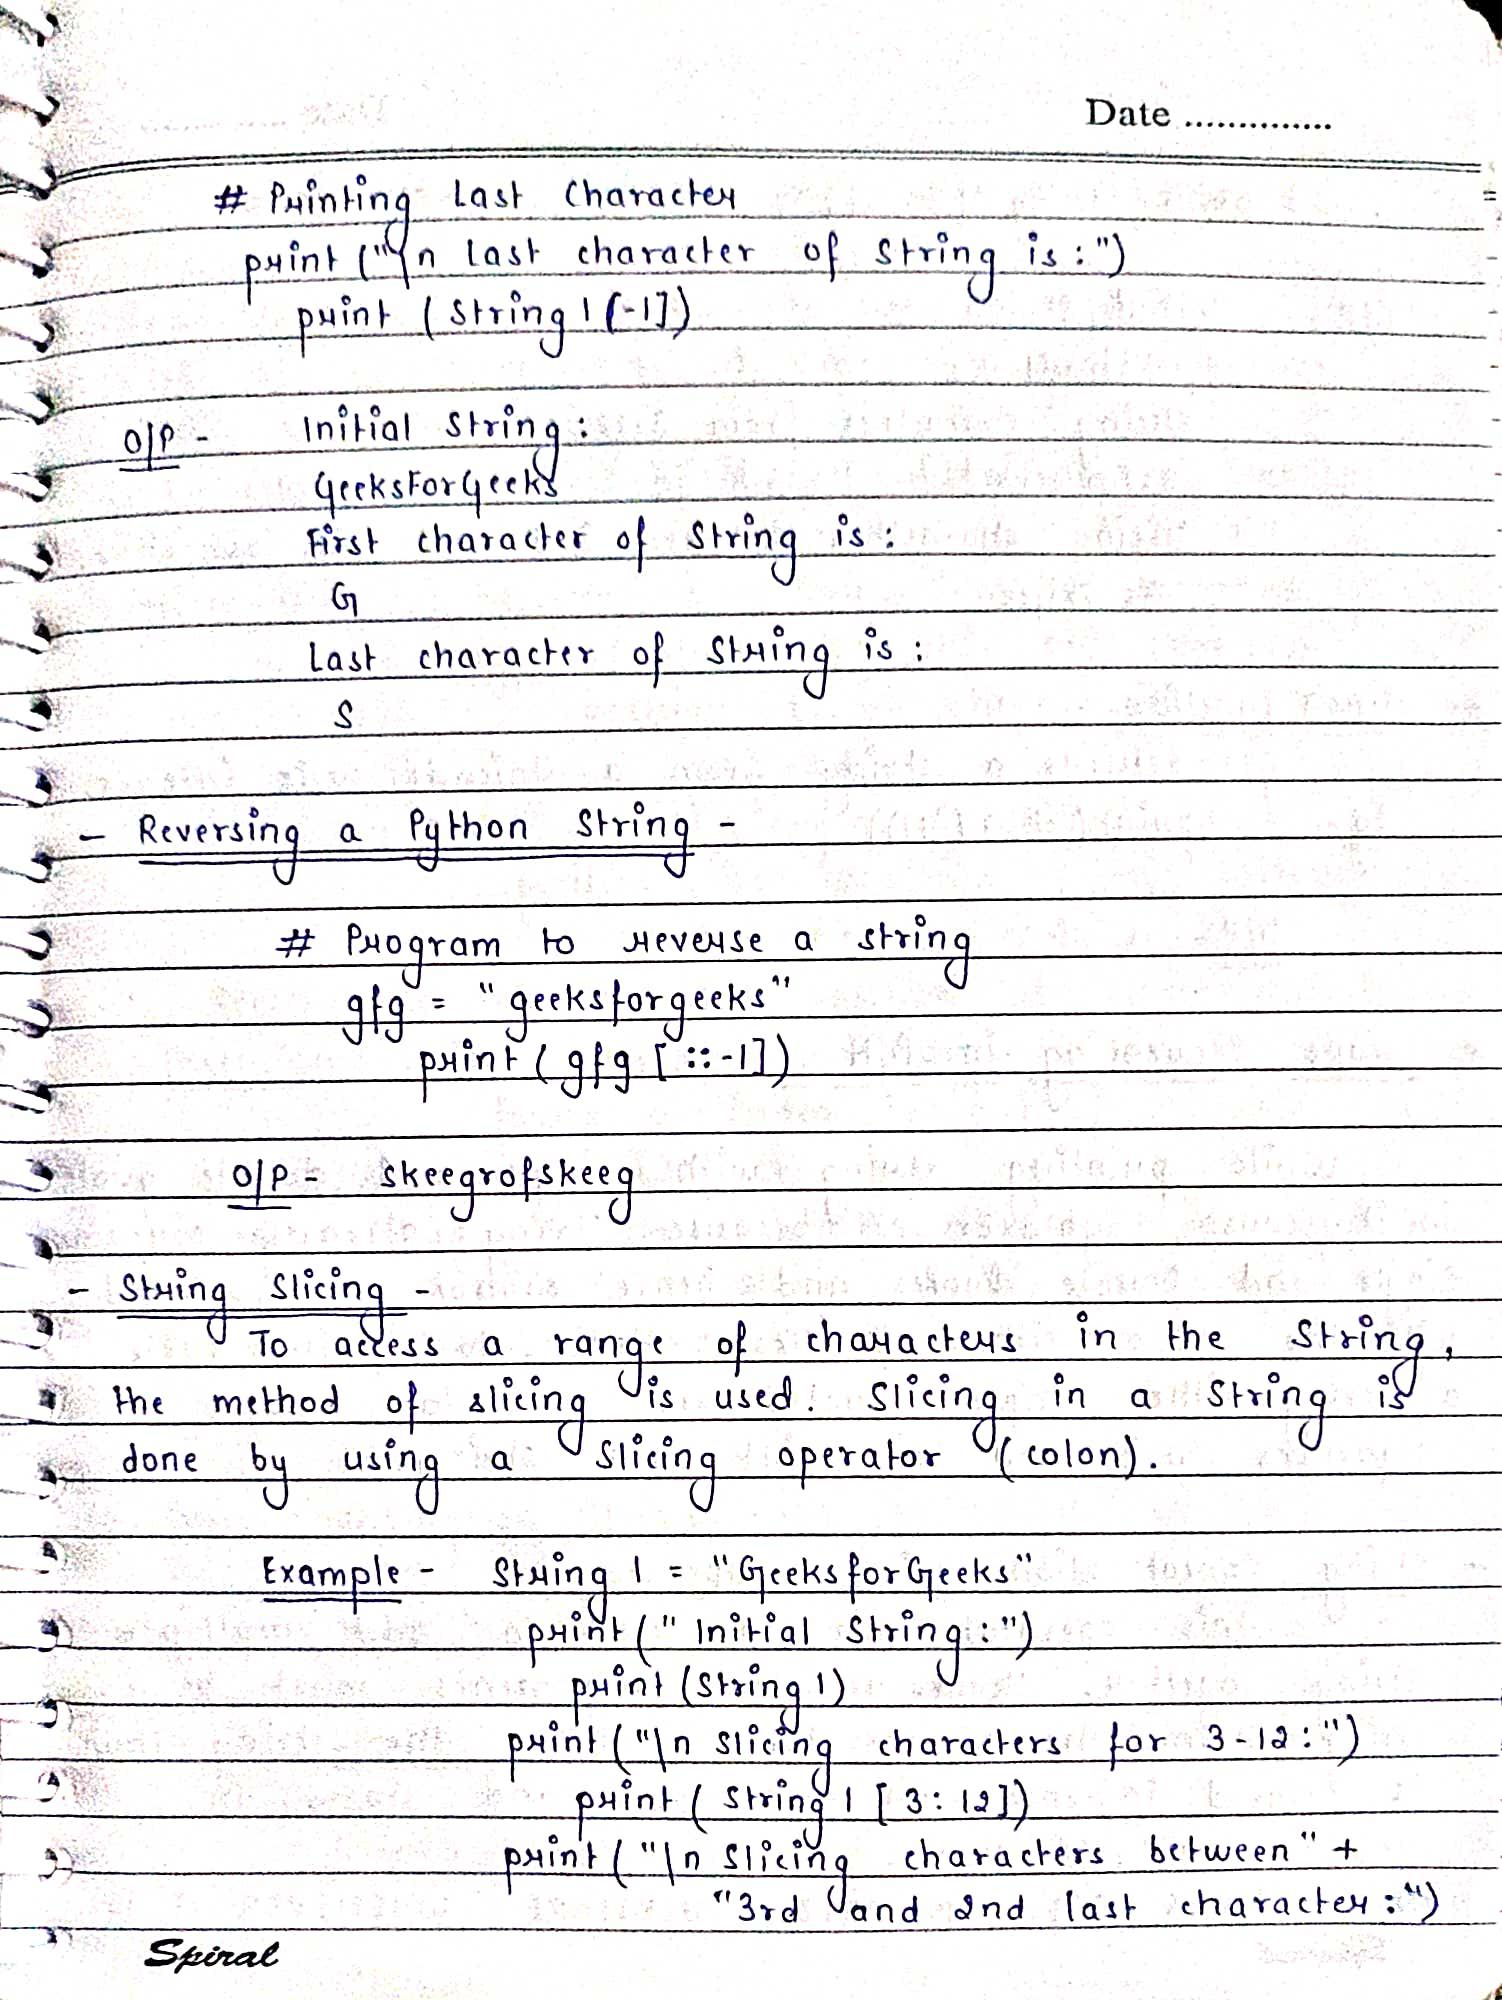 Date ..............
# Printing Last Character
print ("\n Last character of string is :")
print (string 1 (-1])
O/P - Initial string :
GeeksForGeeks
First character of string is :
G
Last character of string is :
s
- Reversing a Python String -
# Program to reverse a string
gfg = "geeksforgeeks"
print ( gfg [ ::-1])
O/P - skeegrofskeeg
- String Slicing -
To access a range of characters in the String,
the method of slicing is used. Slicing in a string is
done by using a slicing operator (colon).
Example - String 1 = "GeeksforGeeks"
print (" Initial string :")
print (string 1)
print ("\n slicing characters for 3-12 :")
print ( string 1 [ 3: 12])
print ("\n slicing characters between" +
"3rd and 2nd last character :")
Spiral